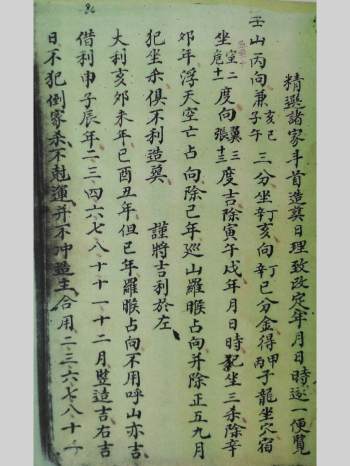 精選諸家斗首造葬日理致改定年月日時逐一便覽
壬山丙向兼亥巳子午三分坐辛亥向辛巳分金得甲子丙子龍坐穴宿
坐室二危十度向翼三張十三度吉除寅午戌年月日時犯坐三杀除辛
卯年浮天空亡占向除己年巡山羅睺占向并除正五九月
犯坐杀俱不利造葬 謹將吉利於左
大利亥卯未年巳酉丑年但巳年羅睺占向不用呼山亦吉
借利申子辰年二三四六七八十十一十二月豎造吉右吉
日不犯倒家杀不尅運并不冲造主合用二三六七八十一